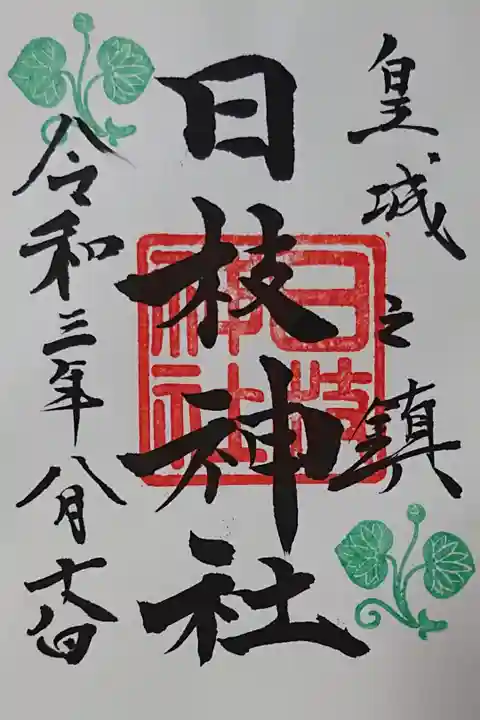 皇城之鎮
日枝神社
日枝
神社
令和三年八月